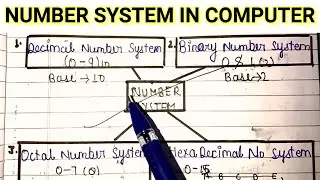 NUMBER SYSTEM IN COMPUTER
1. Decimal Number System
(0-9)10
Base → 10
2. Binary Number System
Base → 2
NUMBER
SYSTEM
3. Octal Number System
0-7 (8)
Hexa Decimal No System
0-15